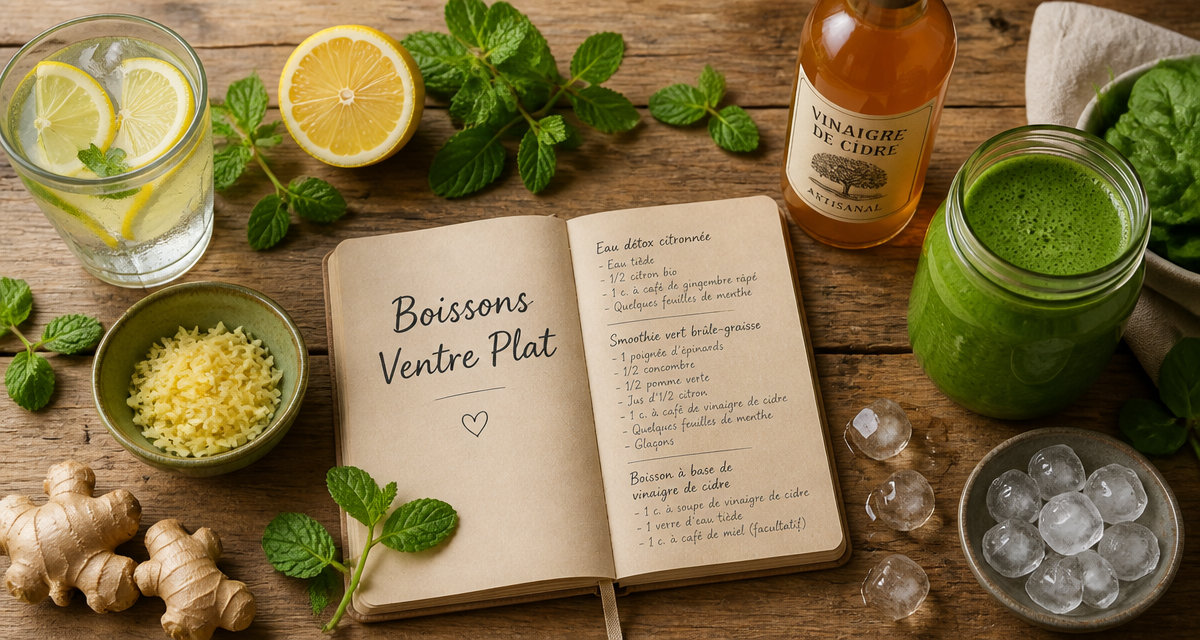 Boissons
Ventre Plat
Eau détox citronnée
- Eau tiède
- 1/2 citron bio
- 1 c. à café de gingembre râpé
- Quelques feuilles de menthe
Smoothie vert brûle-graisse
- 1 poignée d'épinards
- 1/2 concombre
- 1/2 pomme verte
- Jus d'1/2 citron
- 1 c. à café de vinaigre de cidre
- Quelques feuilles de menthe
- Glaçons
Boisson à base de
vinaigre de cidre
- 1 c. à soupe de vinaigre de cidre
- 1 verre d'eau tiède
- 1 c. à café de miel (facultatif)
VINAIGRE
DE CIDRE
ARTISANAL